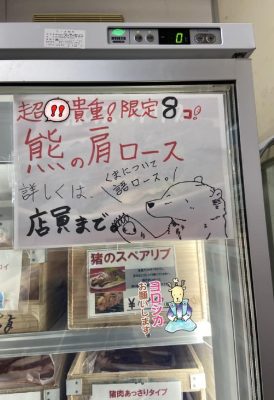 0
超!!貴重!限定8コ!
熊の肩ロース
くまについて
語ロース。!
詳しくは、
店員まで
猪のスペアリブ
¥
ヨロシカ
お願いします。
猪肉あっさりタイプ